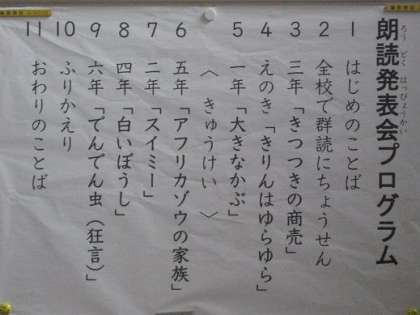 朗読発表会プログラム
ろうどくはっぴょうかい
1 はじめのことば
2 全校で群読にちょうせん
3 三年「きつつきの商売」
4 えのき「きりんはゆらゆら」
5 一年「大きなかぶ」
〈 きゅうけい 〉
6 五年「アフリカゾウの家族」
7 二年「スイミー」
8 四年「白いぼうし」
9 六年「でんでん虫(狂言)」
10 ふりかえり
11 おわりのことば